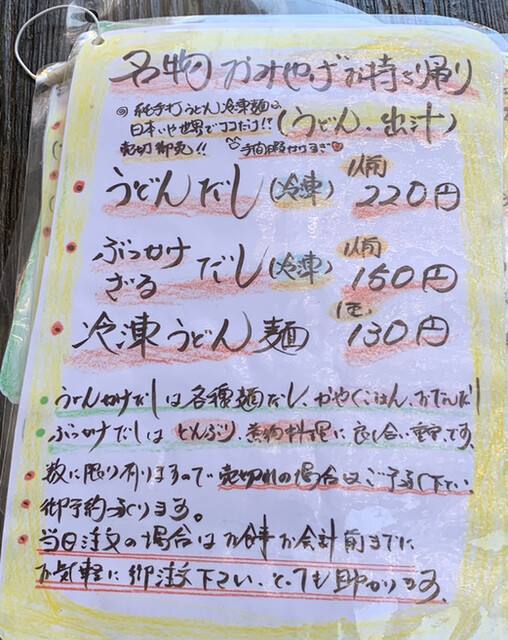 名物 おみやげ お持ち帰り
◎純手打うどん冷凍麺は
日本いや世界でココだけ!!
売切御免!! 手間暇かけすぎ
(うどん、出汁)
・うどんだし(冷凍) 1人前 220円
・ぶっかけ
ざる だし(冷凍) 1人前 150円
・冷凍うどん麺 1玉 130円
・うどんかけだしは各種麺だし、かやくごはん、おでんだし
・ぶっかけだしは どんぶり、煮物料理に良し合い重宝です。
・数に限り有りますので売切れの場合はご了承下さい
・御予約承ります。
・当日注文の場合はお食事お会計前までに
お気軽に御注文下さい、とても助かります。